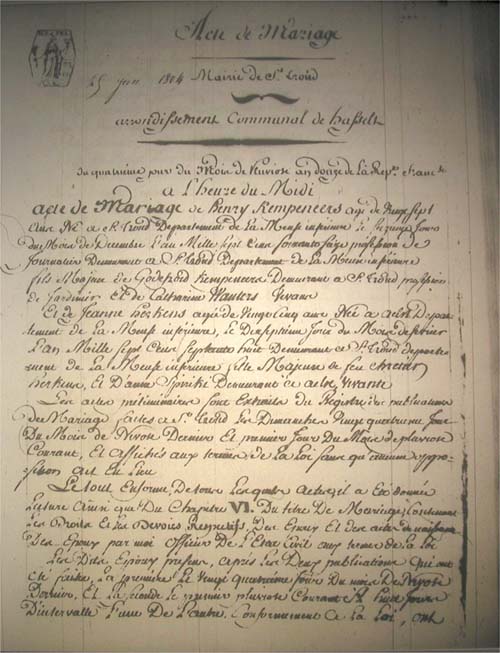 Acte de Mariage
25 Janv 1804 Mairie de St Trond
arrondissement Communal de hasselt
du quatrieme jour du Mois de Pluviose an douze de la Repue francse
a L'heure du Midi
acte de Mariage de Henry Kempeneers agé de vingt sept
ans Né a St Trond Departement de La Meuse inferieure le jours
du Mois de Decembre L'an Mille Sept Cent Soixante seize profession de
Journalier Demeurant a St Trond Departement de La Meuse inferieure
fils Majeur de Godefroid Kempeneers Demeurant a St Trond profession
de Jardinier Et de Catharine Wauters Vivans
Et de Jeanne agée de Vingt Cinq ans Née a Depar
tement de La Meuse inferieure, le Dixseptieme Jour du Mois de fevrier
L'an Mille Sept Cent Septante huit Demeurant a St Trond departe
ment de La Meuse inferieure fille Majeure de feu
Et D'anna Demeurant a vivante
Les actes préliminaires sont Extraits du Registre des publications
de Mariage faites a St Trond Les Dimanches Vingt quatrieme Jour
Du Mois de Nivose Dernier Et premier Jour Du Mois de pluviose
Courant, Et affichés aux termes de La Loi sans qu'aucune oppo
sition ait Eu Lieu
Le tout En forme, De tous Les quels actes il a Eté donné
Lecture ainsi que Du Chapitre VI. Du titre de Mariage Contenant
Les Droits Et Les Devoirs Respectifs, Des Epoux Et des actes de naissance
Des Epoux par moi officier De L'Etat Civil aux termes de La Loi
Les Dits Epoux présens, après Les Deux publications qui ont
eté faites, La première Le Vingt quatrieme Jour du mois de Nivose
Dernier, Et La seconde Le premier pluviose Courant a huit Jours
D'intervalle L'une De L'autre, Conformement a La Loi, ont